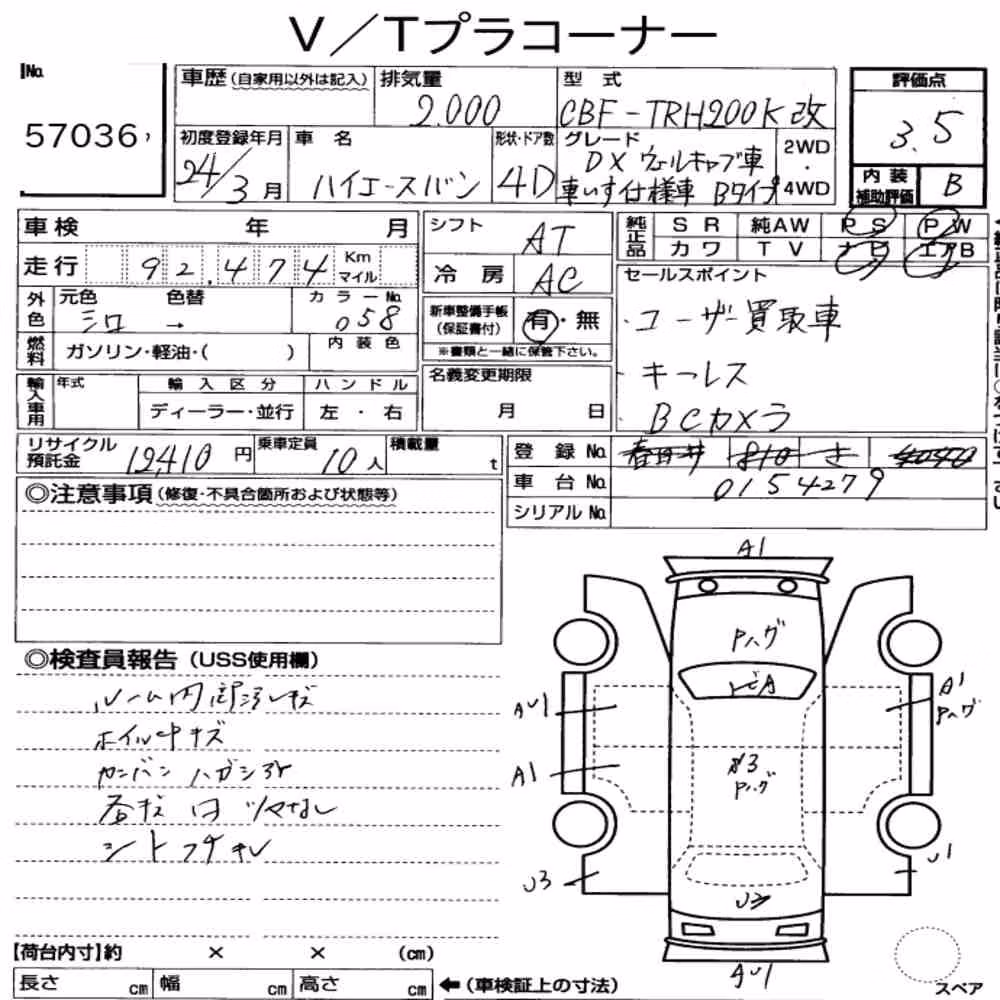 V／Tプラコーナー
No.
57036
車歴 (自家用以外は記入) 排気量 2.000 型式 CBF-TRH200K改
評価点 3.5
初度登録年月 24/3月 車名 ハイエースバン 形状・ドア数 4D グレード DX ウェルキャブ車 車いす仕様車 Bタイプ 2WD・4WD
内装補助評価 B
車検 年 月 シフト AT 純正品 SR 純AW PS PW
カワ TV ナビ エアB
走行 92,474 Km マイル 冷房 AC
セールスポイント
外色 元色 シロ 色替 → カラーNo. 058
新車整備手帳 (保証書付) 有・無
・ユーザー買取車
燃料 ガソリン・軽油・( ) 内装色
※書類と一緒に保管下さい。
・キーレス
輸入車用 年式 輸入区分 ハンドル 名義変更期限
ディーラー・並行 左・右 月 日
BCカメラ
リサイクル預託金 12,410円 乗車定員 10人 積載量 t
登録No. 春日井 810 さ
車台No. 0154279
シリアルNo.
◎注意事項 (修復・不具合箇所および状態等)
◎検査員報告 (USS使用欄)
ルーム内部汚レキズ
ホイル中キズ
カンバンハガシアト
シートフチキレ
A1
Pハグ
トビA
AU1
A1
A1
Pハグ
A3
Pハグ
U3
U1
U3
AU1
【荷台内寸】約 × × (cm)
長さ cm 幅 cm 高さ cm ←(車検証上の寸法)
スペア